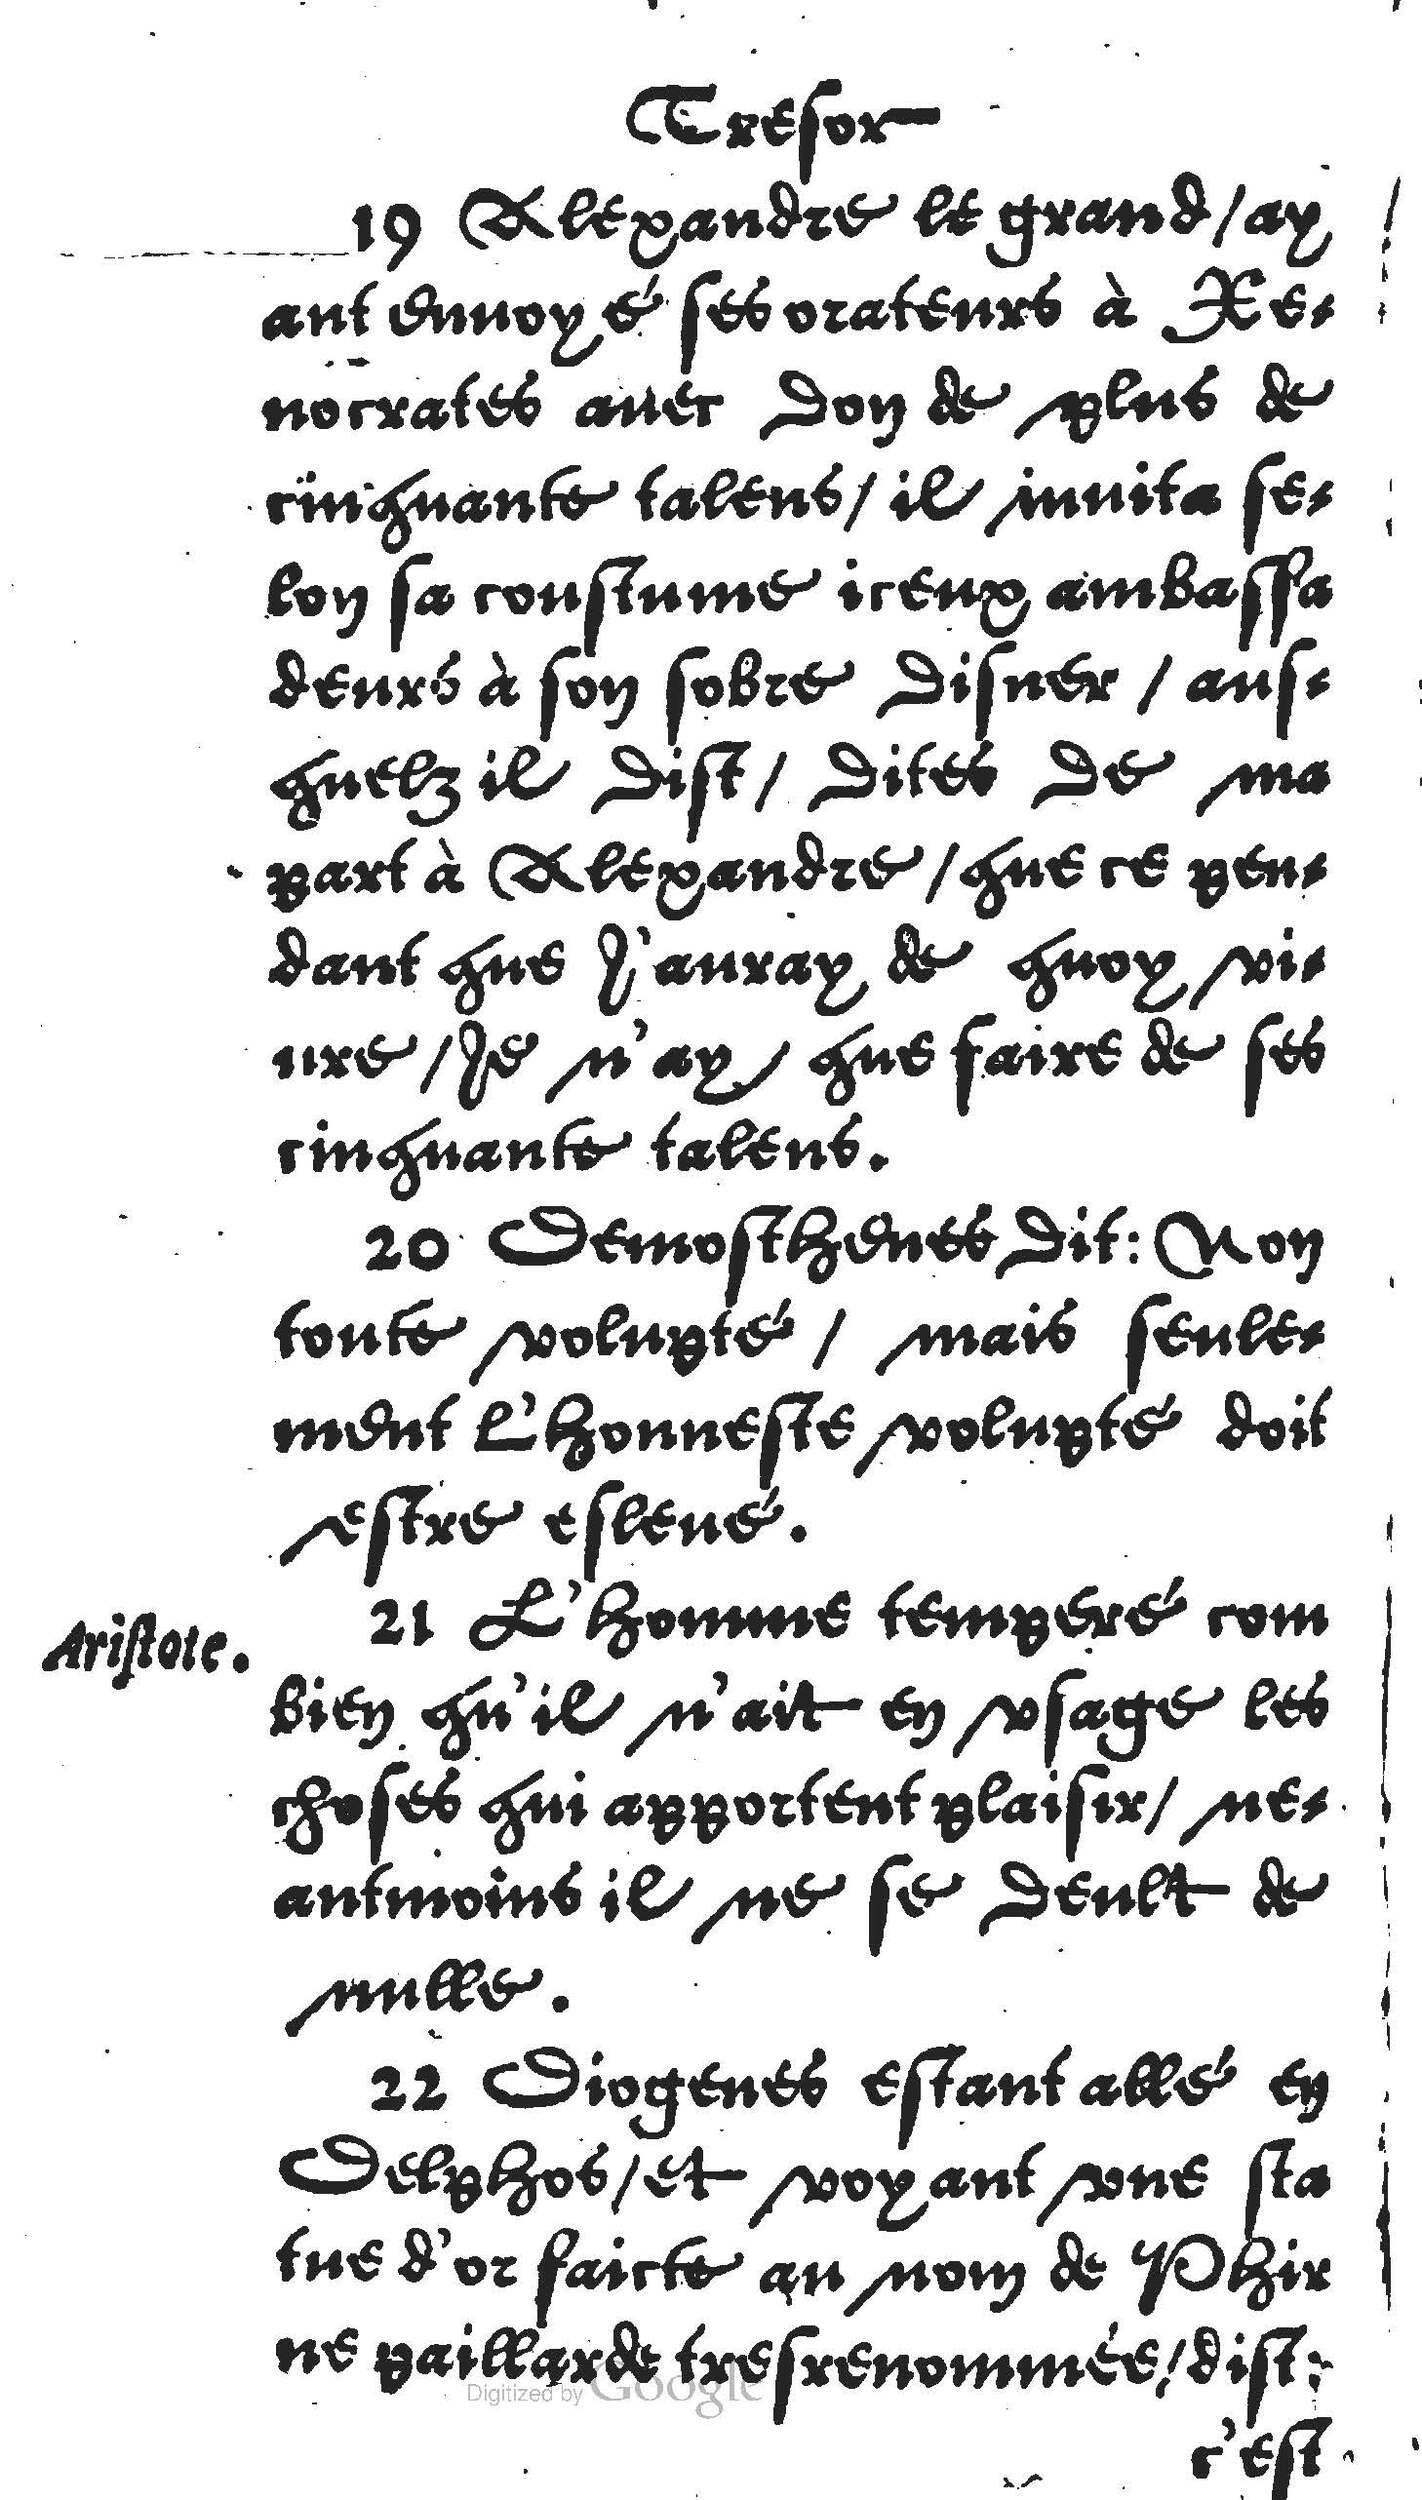 Tresor
19 Alexandre le grand/ay
ant enuoyé ses orateurs à Xe-
nocrates auec don de plus de
cinquante talens/il inuita se-
lon sa coustume iceux ambassa
deurs à son sobre disner/aus-
quelz il dist/dites de ma
part à Alexandre/que ce pen-
dant que J'auray de quoy vi-
ure/Je n'ay que faire de ses
cinquante talens.
20 Demosthenes dit: Non
toute volupté/mais seule-
ment l'honneste volupté doit
estre esleué.
Aristote.
21 L'homme temperé com
bien qu'il n'ait en vsage les
choses qui apportent plaisir/ne-
antmoins il ne se deult de
nulle.
22 Diogenes estant allé en
Delphos/et voyant vne sta
tue d'or faicte au nom de Phir
ne paillarde tresrenommée/dist:
c'est
Digitized by Google